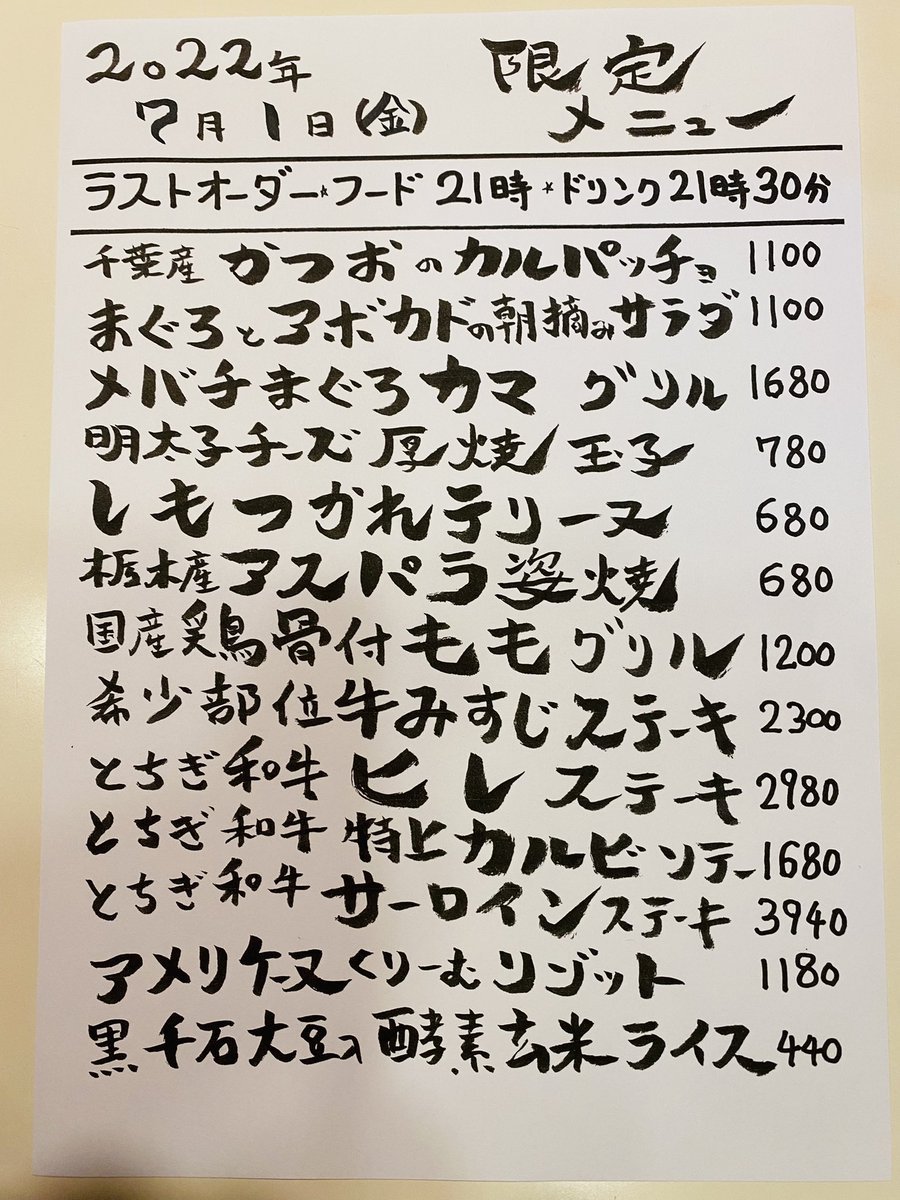 2022年 限定
7月1日(金) メニュー
ラストオーダー☆フード 21時☆ドリンク21時30分
千葉産 かつおのカルパッチョ 1100
まぐろとアボカドの朝摘みサラダ 1100
メバチまぐろカマ グリル 1680
明太子チーズ 厚焼玉子 780
しもつかれテリーヌ 680
栃木産アスパラ姿焼 680
国産鶏骨付ももグリル 1200
希少部位牛みすじステーキ 2300
とちぎ和牛 ヒレステーキ 2980
とちぎ和牛 特上カルビソテー 1680
とちぎ和牛 サーロインステーキ 3940
アメリケーヌくりーむリゾット 1180
黒千石大豆入酵素玄米ライス 440